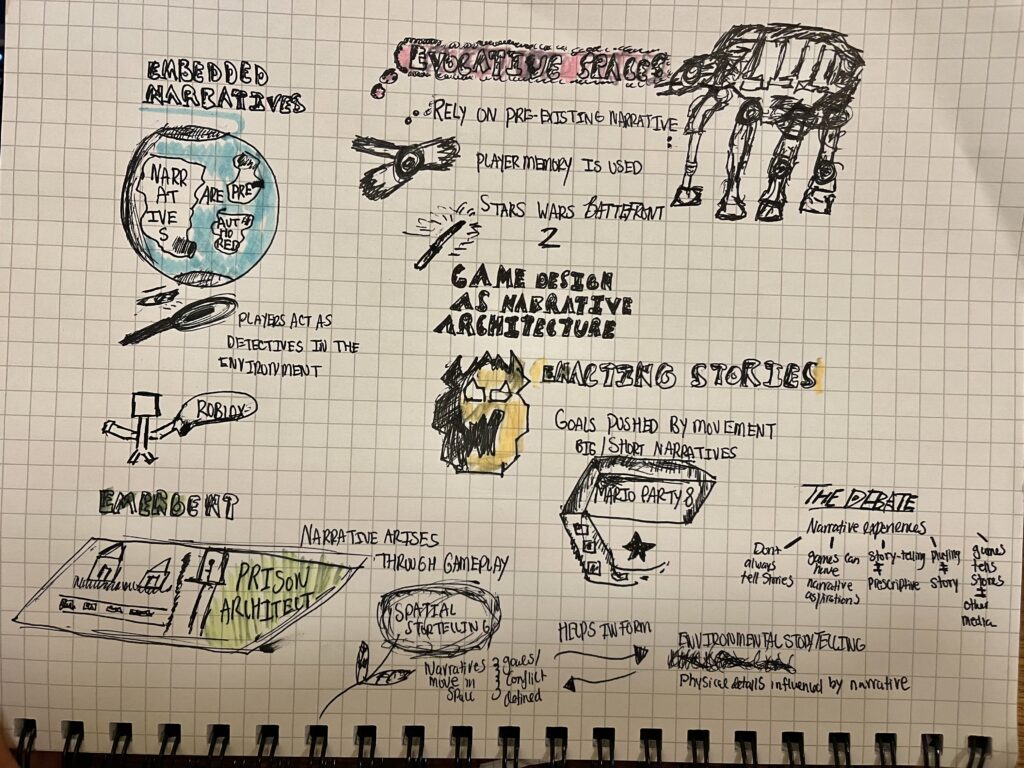 EMBEDDED
NARRATIVES
NARR
AT
IVE
S
ARE
PRE
AUT
HO
RED
PLAYERS ACT AS
DETECTIVES IN THE
ENVIRONMENT
ROBLOX
EVOCATIVE SPACES
RELY ON PRE-EXISTING NARRATIVE
PLAYER MEMORY IS USED
STARS WARS BATTEFRONT
2
GAME DESIGN
AS NARRATIVE
ARCHITECTURE
ENACTING STORIES
GOALS PUSHED BY MOVEMENT
BIG/SHORT NARRATIVES
MARIO PARTY 8
EMERGENT
NARRATIVE ARISES
THROUGH GAMEPLAY
PRISON
ARCHITECT
SPATIAL
STORTELLING
Narratives
move in
space
goals/
conflict
defined
HELPS INFORM
ENVIRONMENTAL STORYTELLING
Physical details influenced by narrative
THE DEBATE
Narrative experiences
Don't
always
tell stories
games can
have
narrative
aspirations
story-telling
≠
prescriptive
playing
≠
story
games
tells
stories
≠
other
media